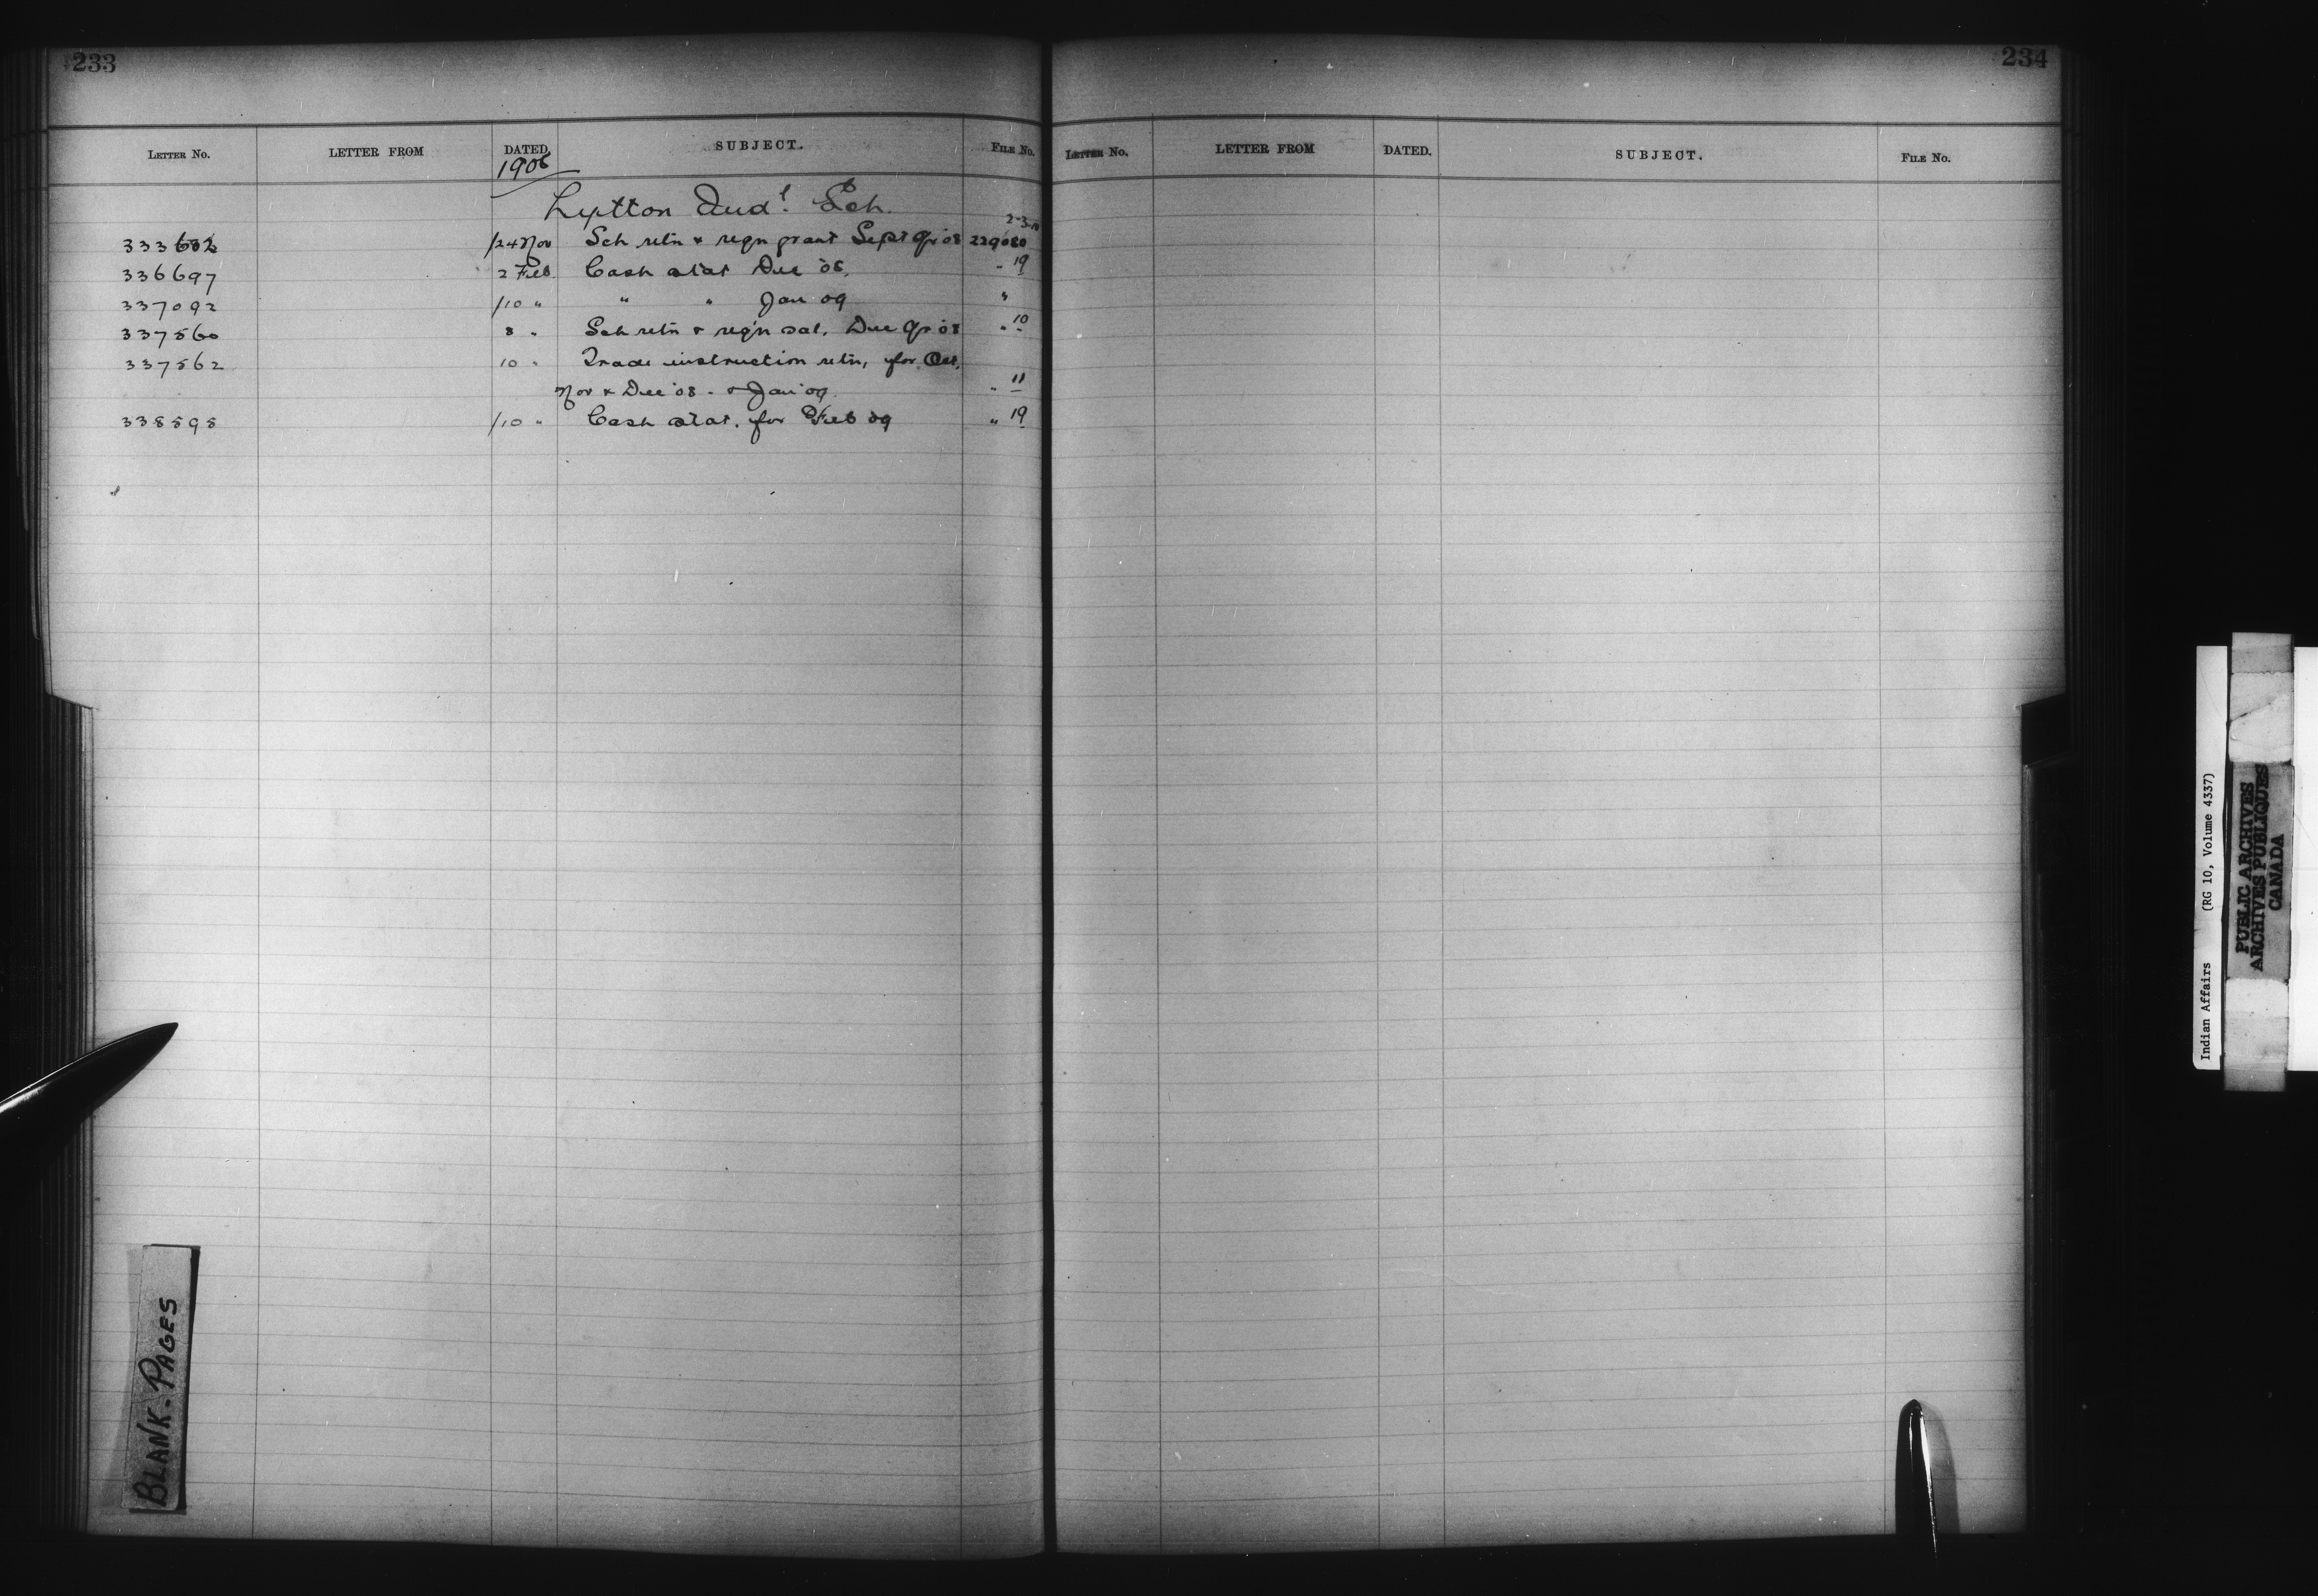 233
LETTER NO. LETTER FROM DATED. SUBJECT. FILE No.
1906
Lytton Ind'l. Sch.
2-3-10
333602 /24 Nov Sch retn & reqn grant Sept Qr '08 229080
336697 2 Feb Cash stat Dec '08. " 19
337092 /10 " " " Jan 09 "
337560 8 " Sch retn & reqn sal. Dec Qr '08 " 10
337562 10 " Trade instruction retn, for Oct,
Nov & Dec '08 - & Jan '09 " 11
338898 /10 " Cash stat. for Feb 09 " 19
234
LETTER NO. LETTER FROM DATED. SUBJECT. FILE No.
BLANK-PAGES
Indian Affairs (RG 10, Volume 4337)
PUBLIC ARCHIVES
ARCHIVES PUBLIQUES
CANADA